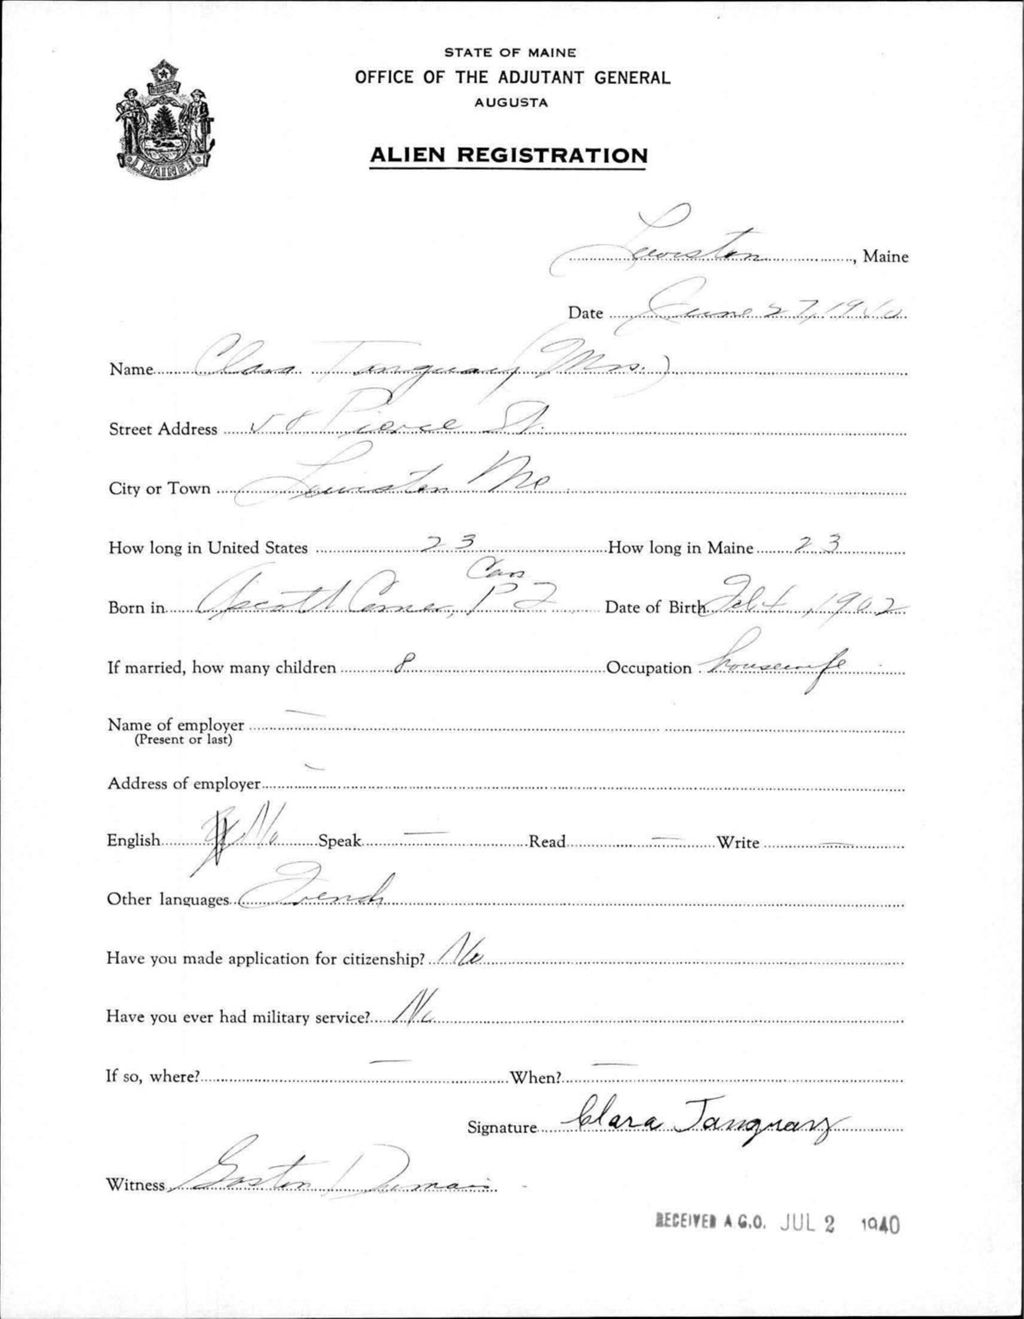 STATE OF MAINE
OFFICE OF THE ADJUTANT GENERAL
AUGUSTA
MAINE
ALIEN REGISTRATION
Lewiston, Maine
Date June 27, 1940
Name Clara Tanguay (Mrs.)
Street Address 58 Pierce St.
City or Town Lewiston Me
How long in United States 23 How long in Maine 23
Can
Born in Corner, P Q Date of Birth Feb 4, 1902
If married, how many children 8 Occupation housewife
Name of employer —
(Present or last)
Address of employer —
English No Speak — Read — Write —
Other languages French
Have you made application for citizenship? No
Have you ever had military service? No
If so, where? — When? —
Signature Clara Tanguay
Witness Gaston Dumais
RECEIVED A.G.O. JUL 2 1940